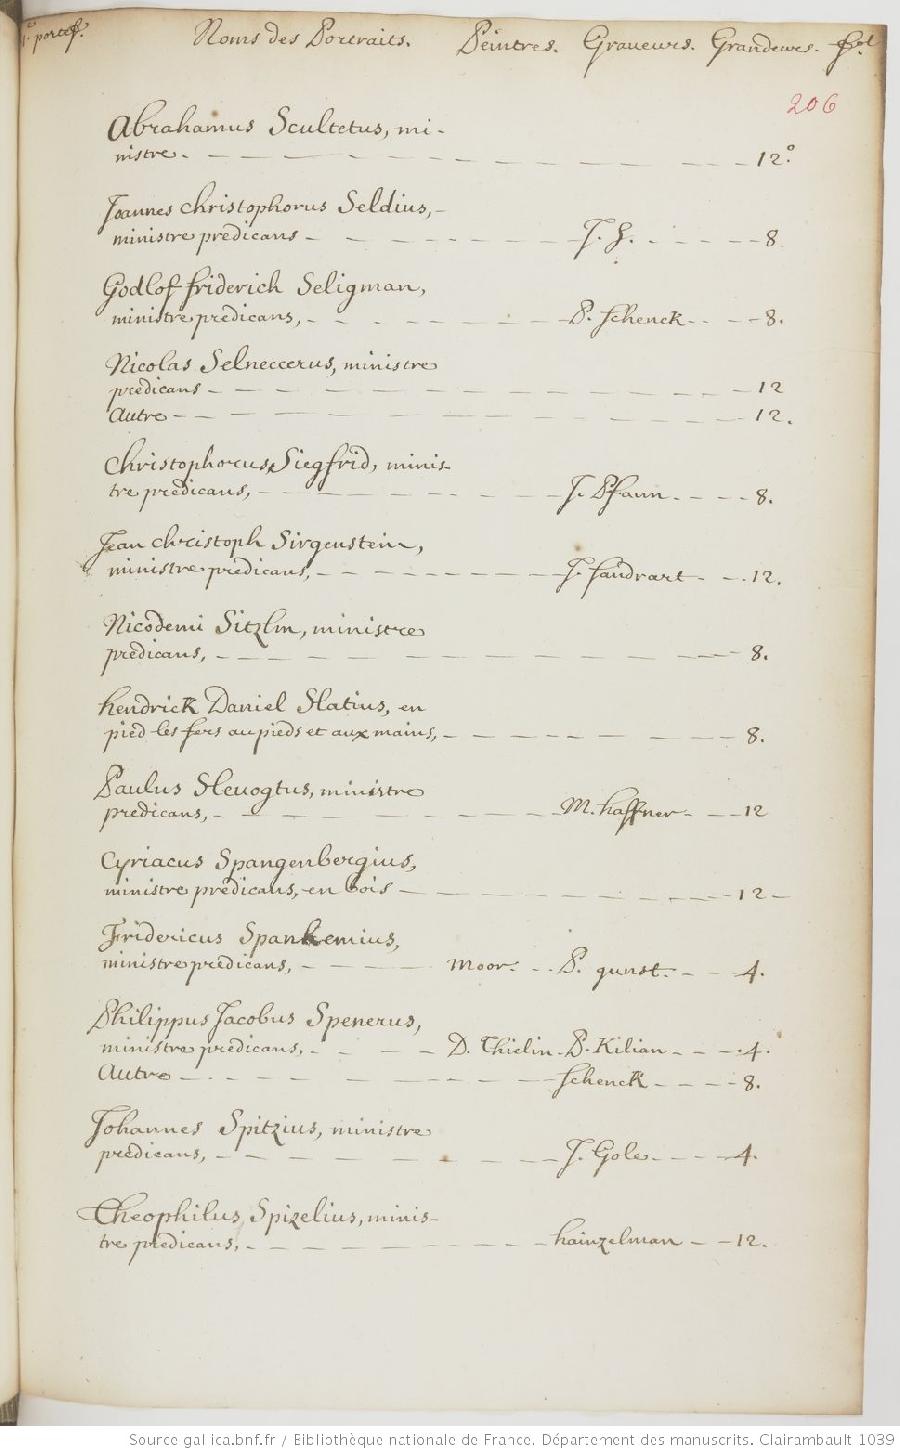 1.e portef. Noms des Portraits. Peintres. Graveurs. Grandeurs. fol.
206
Abrahamus Scultetus, mi-
nistre. 12.o
Joannes christophorus Seldius,
ministre predicans J. H. 8
Godlof friderich Seligman,
ministre predicans, P. schenck 8.
Nicolas Selneccerus, ministre
predicans 12
Autre 12.
Christophorus Siegfrid, minis-
tre predicans, J. Pfann. 8.
Jean christoph Sirgenstein,
ministre predicans, J. sandrart 12.
Nicodemi Sitzlin, ministre
predicans, 8.
hendrick Daniel Slatius, en
pied les fers au pieds et aux mains, 8.
Paulus Slevogtus, ministre
predicans, M. haffner 12
Cyriacus Spangenbergius,
ministre predicans, en bois 12
Fridericus Spankemius,
ministre predicans, Moor. P. gunst. 4.
Philippus Jacobus Spenerus,
ministre predicans, D. Thielin. P. Kilian 4.
Autre schenck 8.
Johannes Spitzius, ministre
predicans, J. Gole. 4.
Theophilus Spizelius, minis-
tre predicans, hainzelman 12.
Source gallica.bnf.fr / Bibliothèque nationale de France. Département des manuscrits. Clairambault 1039